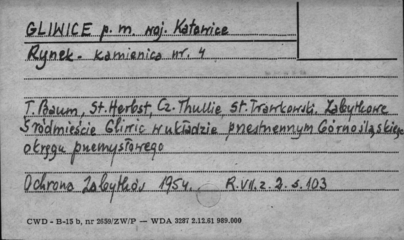 GLIWICE p. m. woj. Katowice
Rynek - kamienica nr. 4
T. Baum, St. Herbst, Cz. Thullie, St. Trawkowski. Zabytkowe
Śródmieście Gliwic w układzie przestrzennym Górnośląskiego
okręgu przemysłowego
Ochrona Zabytków 1954. R. VII. z. 2. s. 103
CWD - B-15 b, nr 2639/ZW/P — WDA 3287 2.12.61 989.000